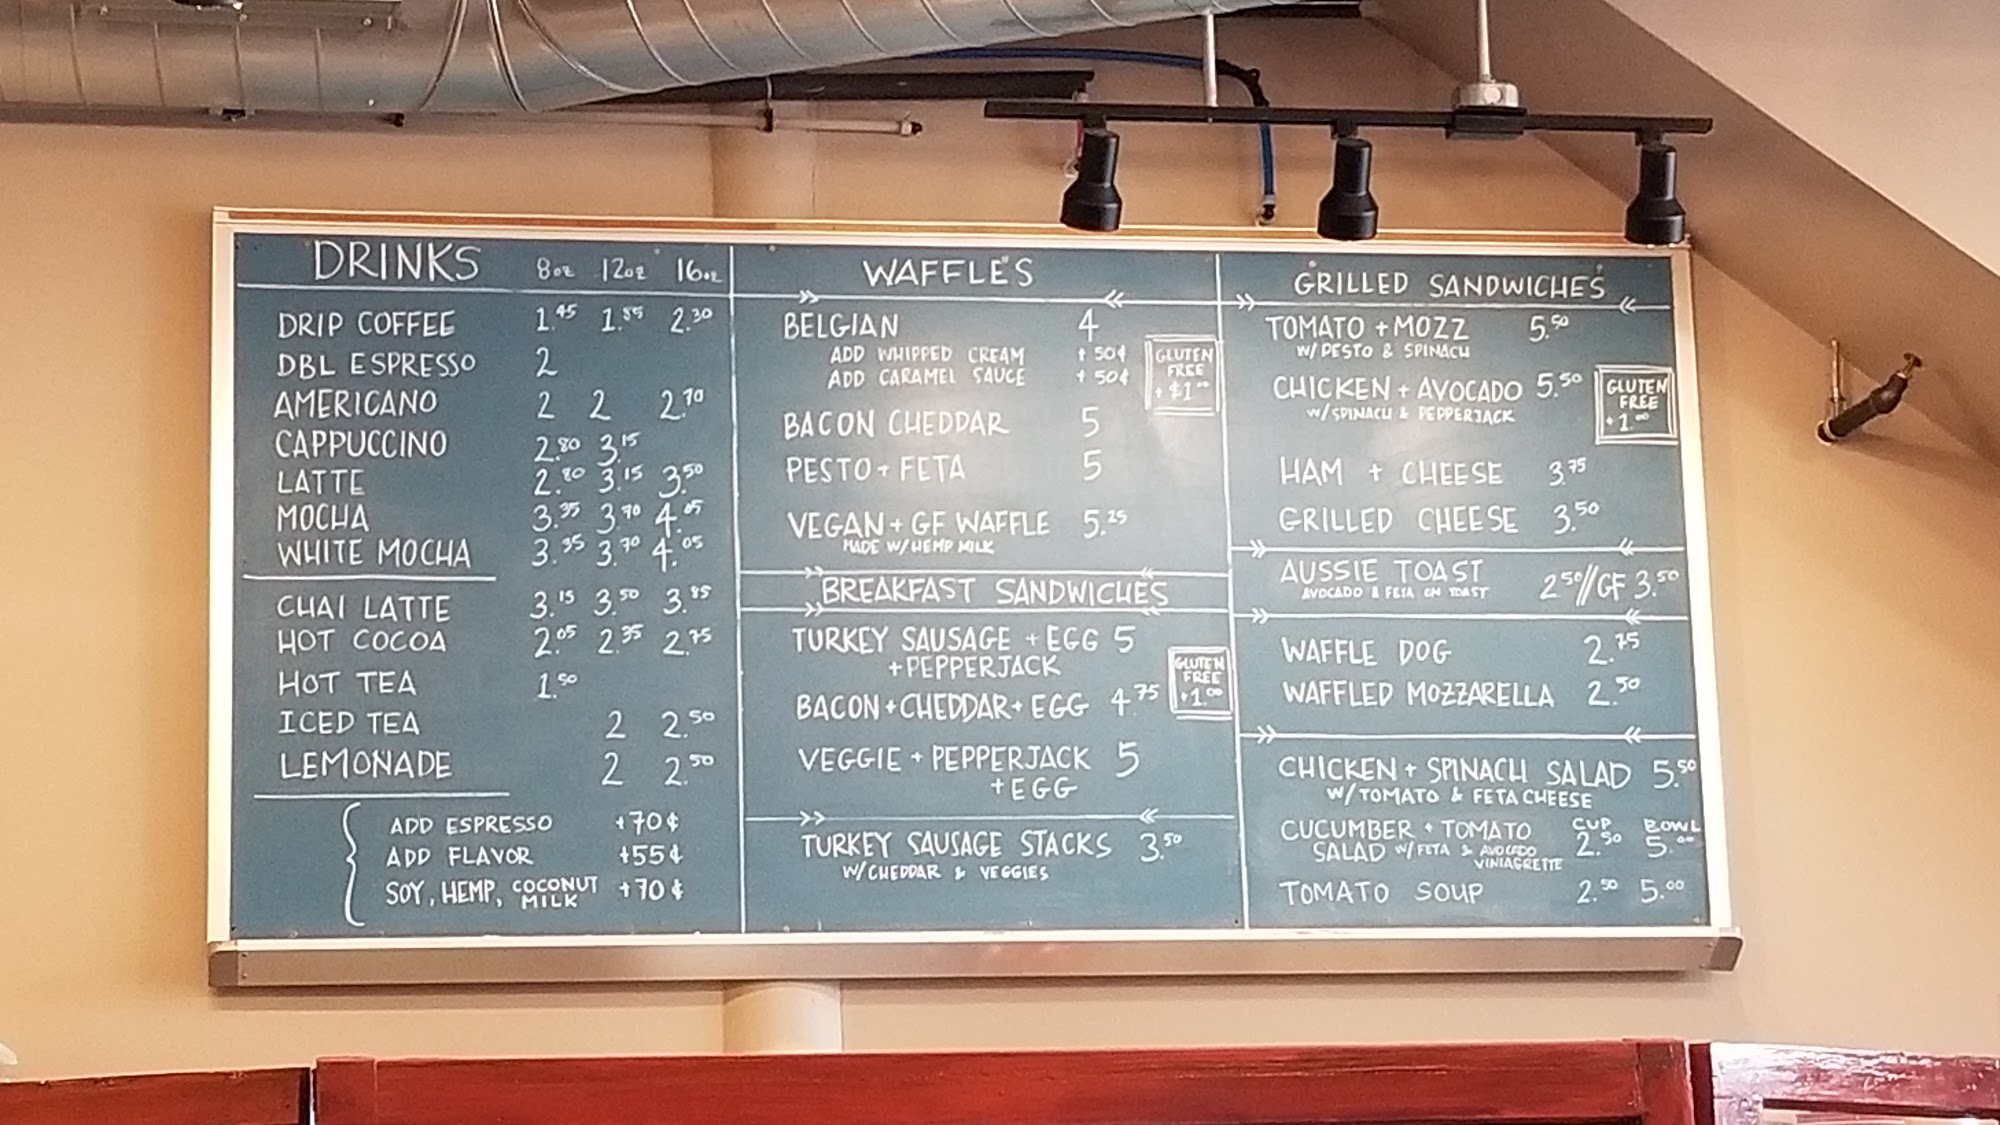 DRINKS 8oz 12oz 16oz
DRIP COFFEE 1.45 1.85 2.30
DBL ESPRESSO 2
AMERICANO 2 2 2.70
CAPPUCCINO 2.80 3.15
LATTE 2.80 3.15 3.50
MOCHA 3.35 3.70 4.05
WHITE MOCHA 3.35 3.70 4.05
CHAI LATTE 3.15 3.50 3.85
HOT COCOA 2.05 2.35 2.75
HOT TEA 1.50
ICED TEA 2 2.50
LEMONADE 2 2.50
ADD ESPRESSO +70¢
ADD FLAVOR +55¢
SOY, HEMP, COCONUT MILK +70¢
WAFFLES
BELGIAN 4
ADD WHIPPED CREAM +50¢
ADD CARAMEL SAUCE +50¢
GLUTEN
FREE
+$1.00
BACON CHEDDAR 5
PESTO + FETA 5
VEGAN + GF WAFFLE 5.25
MADE W/ HEMP MILK
BREAKFAST SANDWICHES
TURKEY SAUSAGE + EGG 5
+ PEPPERJACK
BACON + CHEDDAR + EGG 4.75
GLUTEN
FREE
+1.00
VEGGIE + PEPPERJACK 5
+ EGG
TURKEY SAUSAGE STACKS 3.50
W/ CHEDDAR & VEGGIES
GRILLED SANDWICHES
TOMATO + MOZZ 5.50
W/ PESTO & SPINACH
CHICKEN + AVOCADO 5.50
W/ SPINACH & PEPPERJACK
GLUTEN
FREE
+1.00
HAM + CHEESE 3.75
GRILLED CHEESE 3.50
AUSSIE TOAST 2.50//GF 3.50
AVOCADO & FETA ON TOAST
WAFFLE DOG 2.75
WAFFLED MOZZARELLA 2.50
CHICKEN + SPINACH SALAD 5.50
W/ TOMATO & FETA CHEESE
CUP BOWL
CUCUMBER + TOMATO 2.50 5.00
SALAD W/ FETA & AVOCADO
VINIAGRETTE
TOMATO SOUP 2.50 5.00